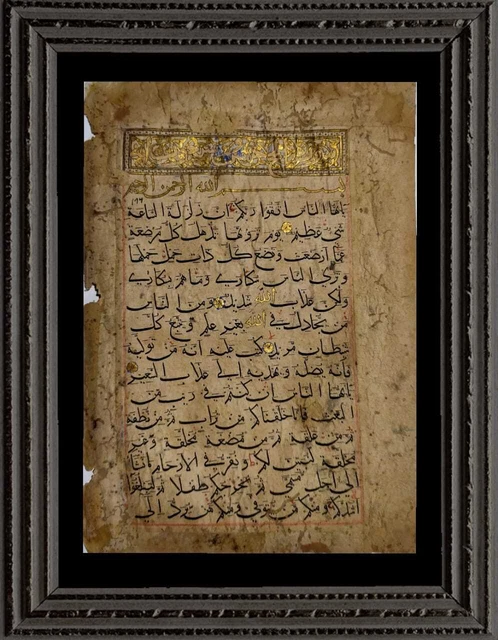 بسم الله الرحمن الرحيم
يايها الناس اتقوا ربكم ان زلزلة الساعة
شي عظيم يوم ترونها تذهل كل مرضعة
عما ارضعت وتضع كل ذات حمل حملها
وترى الناس سكارى وما هم بسكارى
ولكن عذاب الله شديد ومن الناس
من يجادل في الله بغير علم ويتبع كل
شيطان مريد كتب عليه انه من تولاه
فانه يضله ويهديه الى عذاب السعير
يايها الناس ان كنتم في ريب من
البعث فانا خلقناكم من تراب ثم من نطفة
ثم من علقة ثم من مضغة مخلقة وغير
مخلقة لنبين لكم ونقر في الارحام ما نشا
الى اجل مسمى ثم نخرجكم طفلا ثم لتبلغوا
اشدكم ومنكم من يتوفى ومنكم من يرد الى